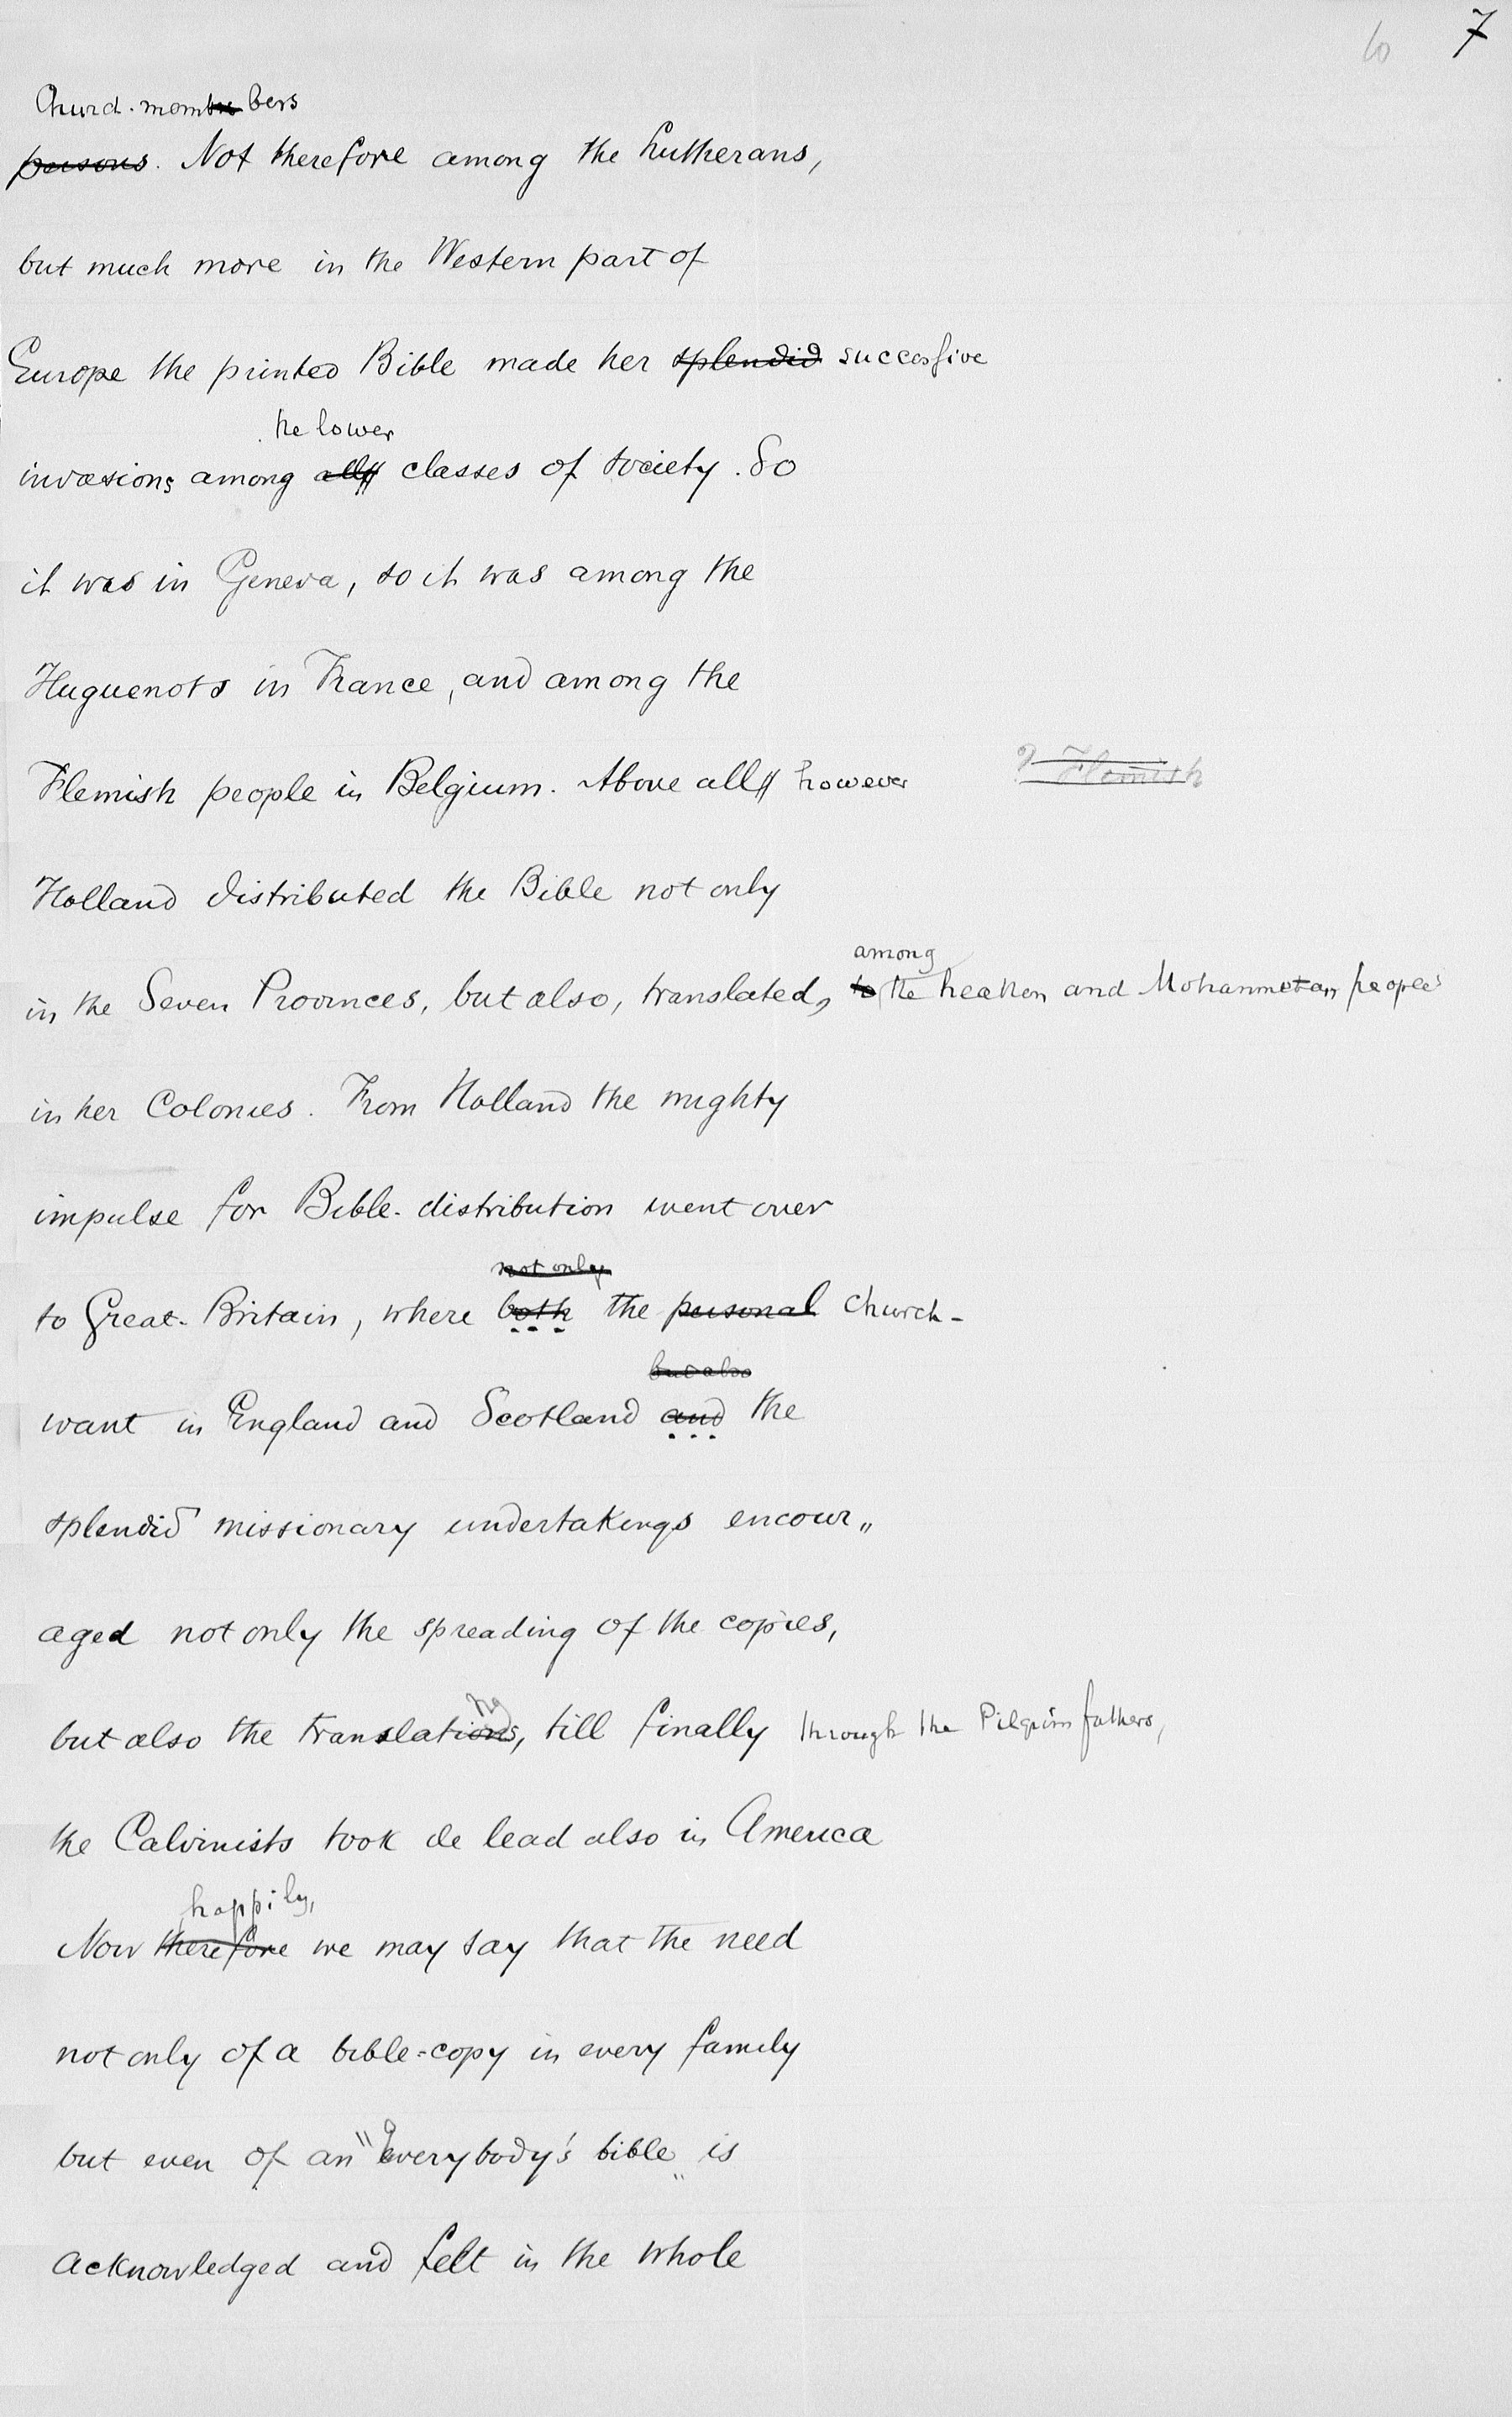 7
Church-members
persons. Not therefore among the Lutherans,
but much more in the Western part of
Europe the printed Bible made her splendid successive
the lower
invasions among all classes of society. So
it was in Geneva, so it was among the
Huguenots in France, and among the
Flemish people in Belgium. Above all however
? Flemish
Holland distributed the Bible not only
among
in the Seven Provinces, but also, translated, to the heathen and Mohammetan peoples
in her Colonies. From Holland the mighty
impulse for Bible-distribution went over
not only
to Great-Britain, where both the personal church-
but also
want in England and Scotland and the
splendid missionary undertakings encour„
aged not only the spreading of the copies,
ng
but also the translations, till finally through the Pilgrim fathers,
the Calvinists took de lead also in America
happily,
Now therefore we may say that the need
not only of a bible=copy in every family
but even of an "Everybody's bible„ is
acknowledged and felt in the whole